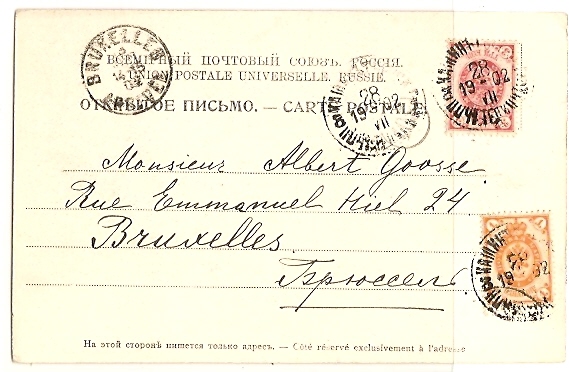 ВСЕМІРНЫЙ ПОЧТОВЫЙ СОЮЗЪ. РОССІЯ.
UNION POSTALE UNIVERSELLE. RUSSIE.
ОТКРЫТОЕ ПИСЬМО. — CARTE POSTALE
BRUXELLES
28
19 02
VII
28
19 02
VII
Monsieur Albert Goosse
Rue Emmanuel Hiel 24
Bruxelles
Брюссель
28
19 02
На этой сторонѣ пишется только адресъ. — Côté réservé exclusivement à l'adresse